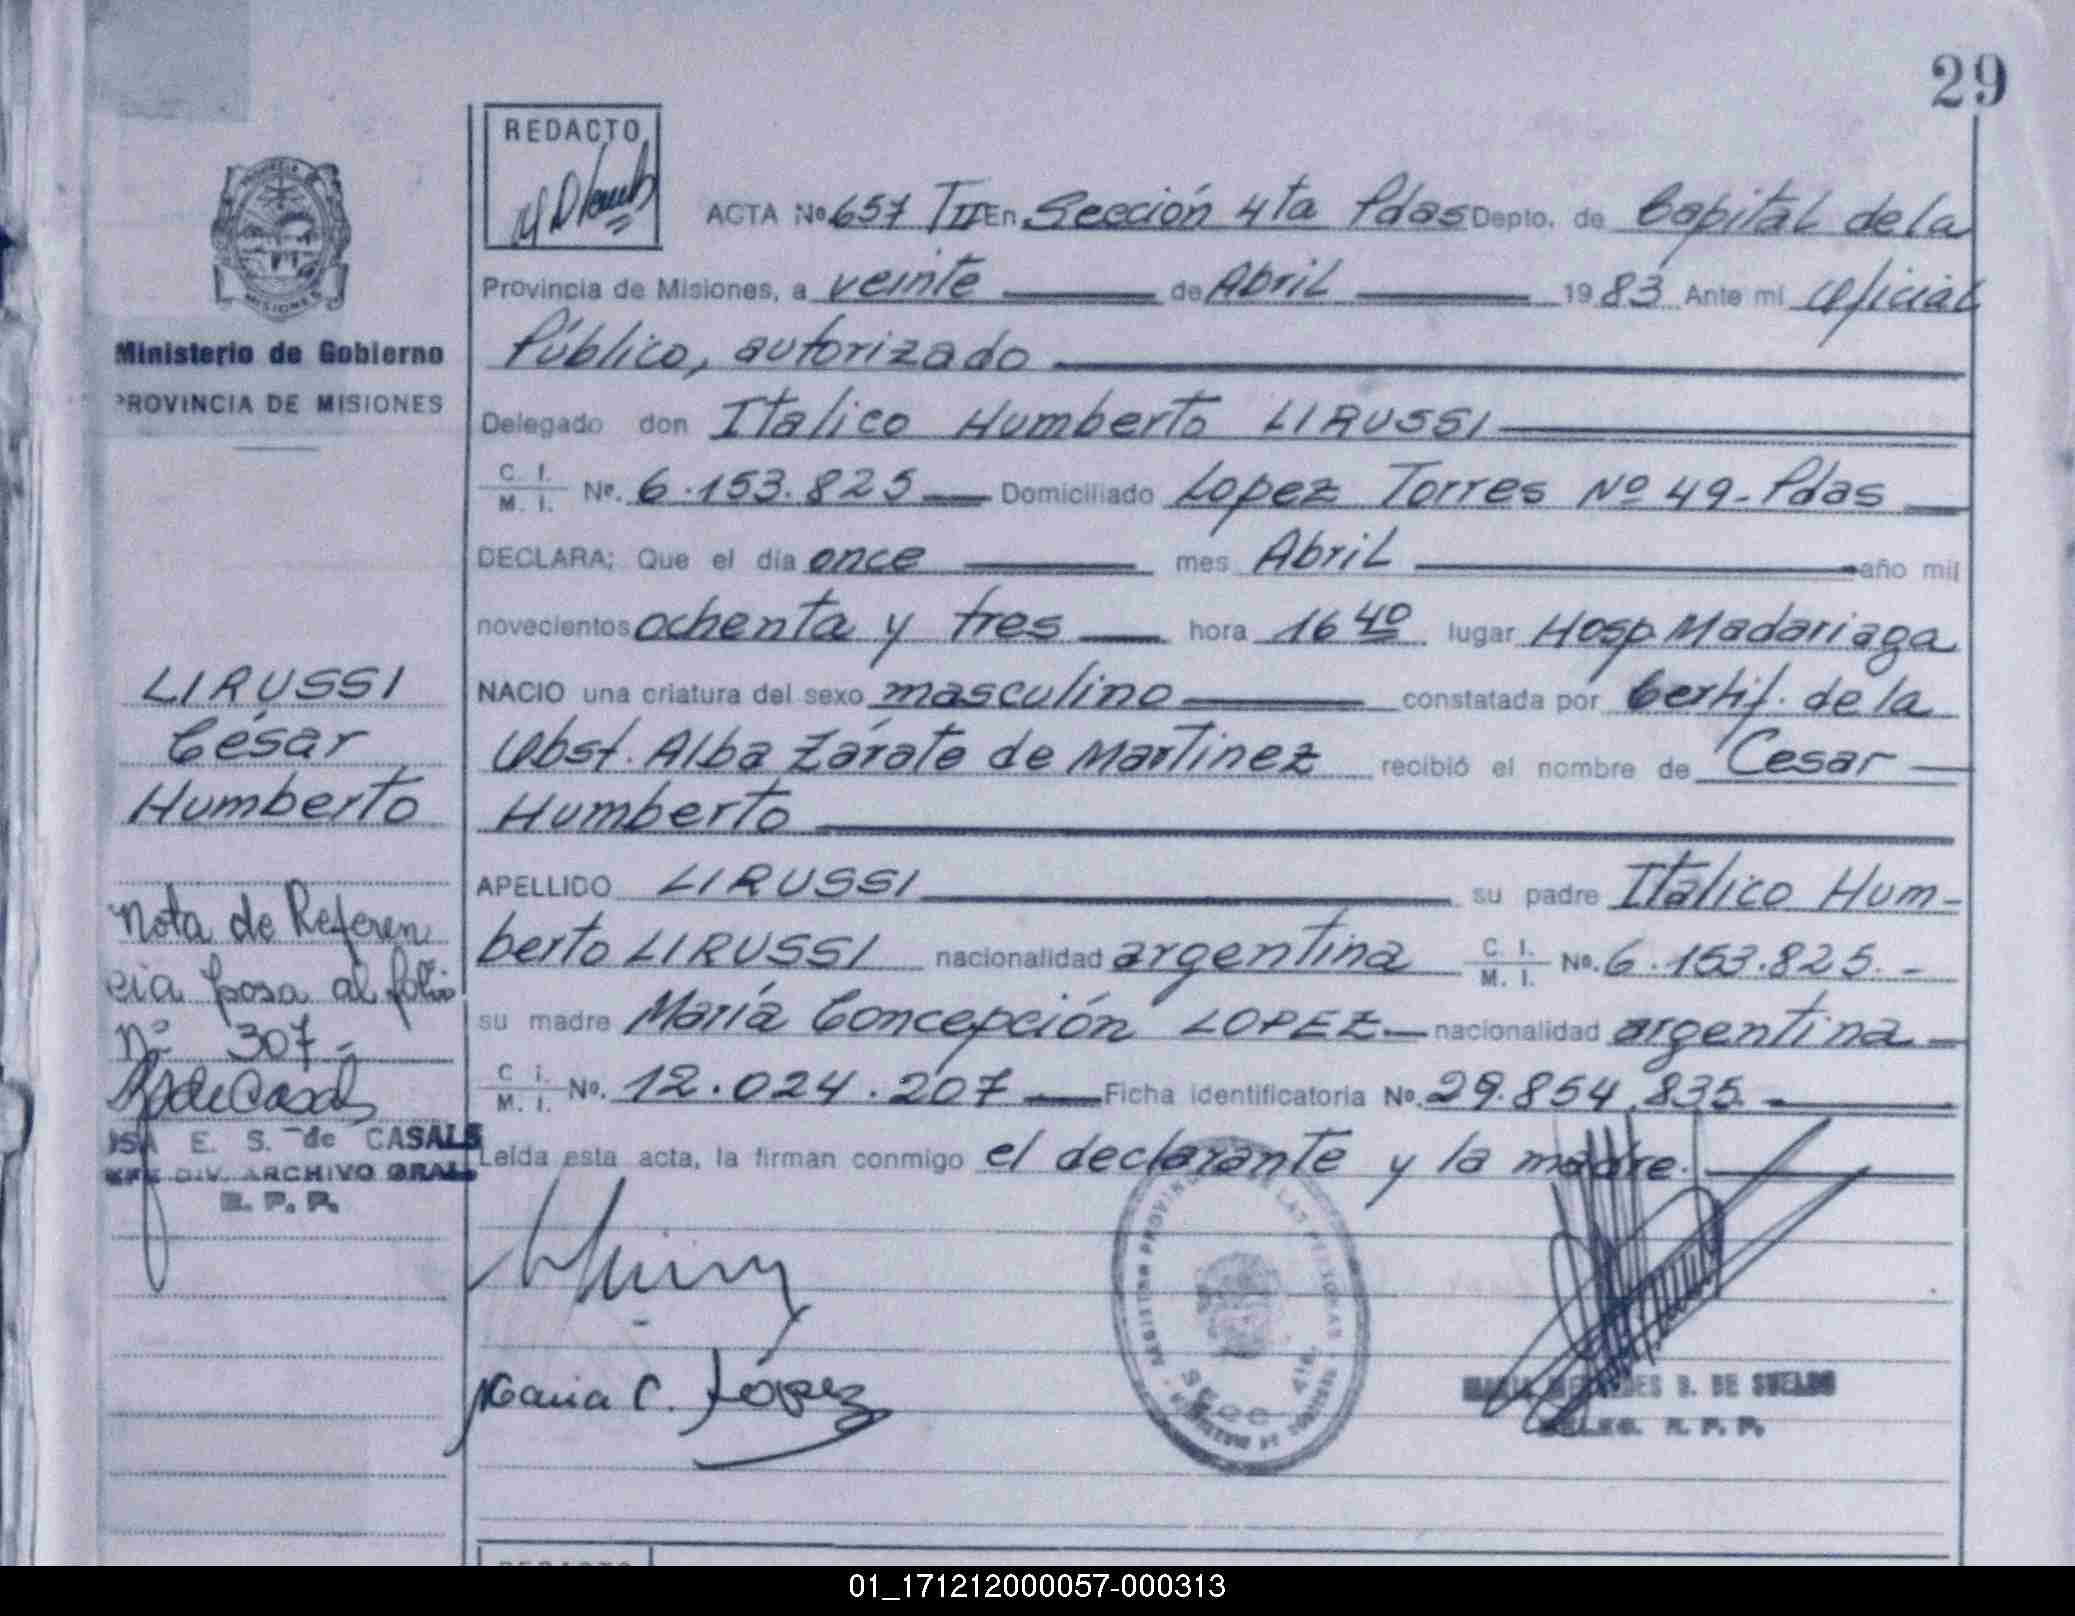 29
REDACTO
ACTA Nº 657 TII En Sección 4ta Pdas Depto. de Capital de la
Provincia de Misiones, a veinte de Abril 1983 Ante mi Oficial
Público, autorizado
Ministerio de Gobierno
PROVINCIA DE MISIONES
Delegado don Italico Humberto LIRUSSI
C. I. / M. I. Nº. 6.153.825 Domiciliado Lopez Torres Nº 49 - Pdas
DECLARA; Que el día once mes Abril año mil
novecientos ochenta y tres hora 16 40 lugar Hosp. Madariaga
NACIO una criatura del sexo masculino constatada por Certif. de la
Obst. Alba Zárate de Martinez recibió el nombre de Cesar
Humberto
LIRUSSI
César
Humberto
APELLIDO LIRUSSI su padre Italico Hum-
berto LIRUSSI nacionalidad argentina C. I. / M. I. No. 6.153.825.-
su madre María Concepción LOPEZ nacionalidad argentina
C. I. / M. I. No. 12.024.207 Ficha identificatoria No. 29.854.835.-
Leída esta acta, la firman conmigo el declarante y la madre.
Nota de Referen
cia pasa al folio
Nº 307.-
E. S. de CASALS
DIV. ARCHIVO GRAL
R. P. P.
Maria C. López
B. DE SUELDO
R. P. P.
REDACTO
01_171212000057-000313